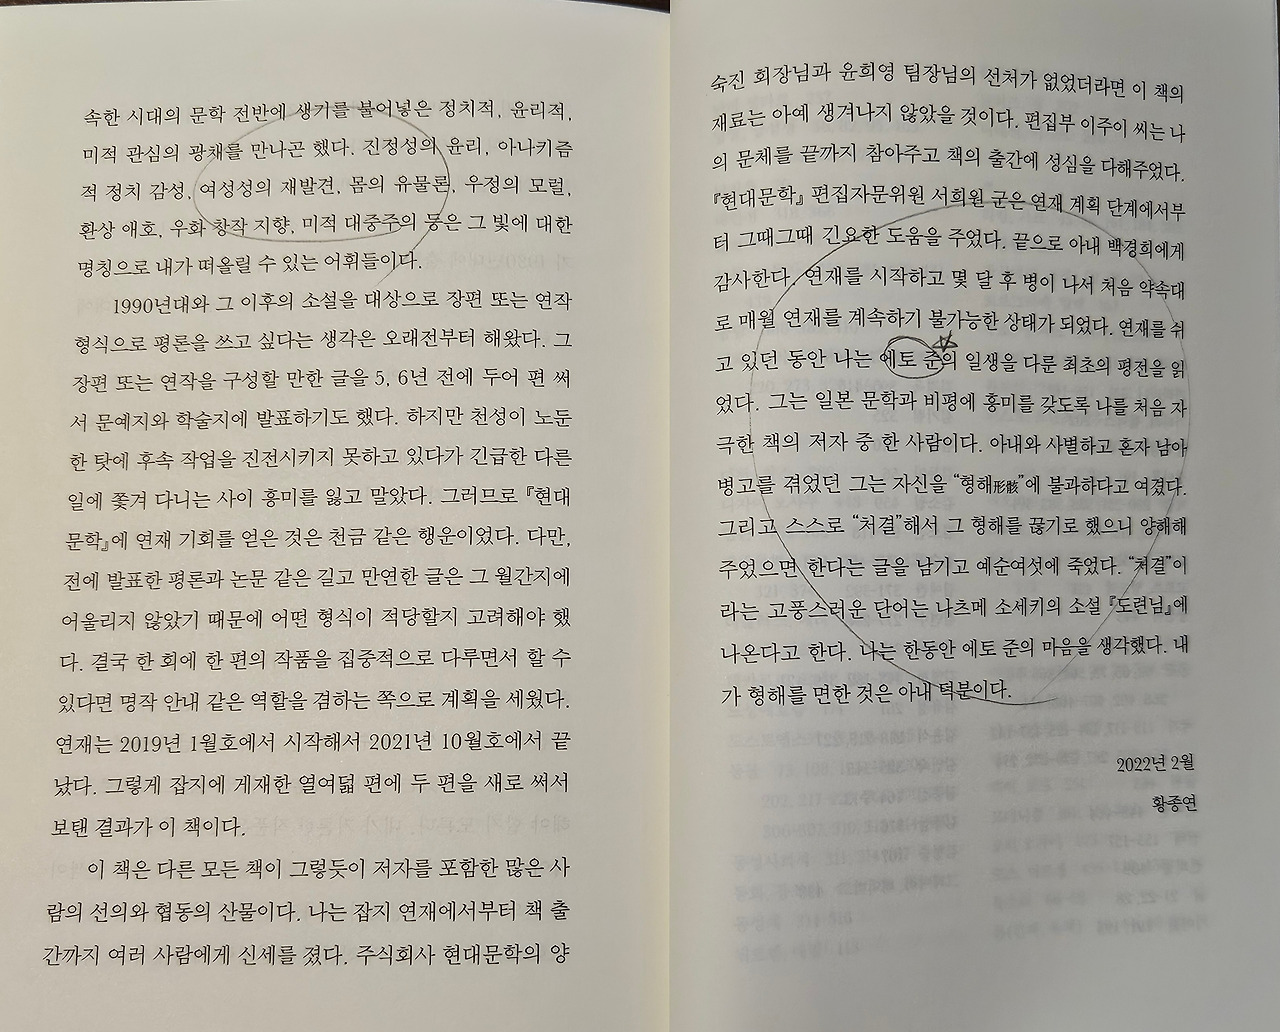 속한 시대의 문학 전반에 생기를 불어넣은 정치적, 윤리적,
미적 관심의 광채를 만나곤 했다. 진정성의 윤리, 아나키즘
적 정치 감성, 여성성의 재발견, 몸의 유물론, 우정의 모럴,
환상 애호, 우화 창작 지향, 미적 대중주의 등은 그 빛에 대한
명칭으로 내가 떠올릴 수 있는 어휘들이다.
1990년대와 그 이후의 소설을 대상으로 장편 또는 연작
형식으로 평론을 쓰고 싶다는 생각은 오래전부터 해왔다. 그
장편 또는 연작을 구성할 만한 글을 5, 6년 전에 두어 편 써
서 문예지와 학술지에 발표하기도 했다. 하지만 천성이 노둔
한 탓에 후속 작업을 진전시키지 못하고 있다가 긴급한 다른
일에 쫓겨 다니는 사이 흥미를 잃고 말았다. 그러므로 『현대
문학』에 연재 기회를 얻은 것은 천금 같은 행운이었다. 다만,
전에 발표한 평론과 논문 같은 길고 만연한 글은 그 월간지에
어울리지 않았기 때문에 어떤 형식이 적당할지 고려해야 했
다. 결국 한 회에 한 편의 작품을 집중적으로 다루면서 할 수
있다면 명작 안내 같은 역할을 겸하는 쪽으로 계획을 세웠다.
연재는 2019년 1월호에서 시작해서 2021년 10월호에서 끝
났다. 그렇게 잡지에 게재한 열여덟 편에 두 편을 새로 써서
보탠 결과가 이 책이다.
이 책은 다른 모든 책이 그렇듯이 저자를 포함한 많은 사
람의 선의와 협동의 산물이다. 나는 잡지 연재에서부터 책 출
간까지 여러 사람에게 신세를 졌다. 주식회사 현대문학의 양
숙진 회장님과 윤희영 팀장님의 선처가 없었더라면 이 책의
재료는 아예 생겨나지 않았을 것이다. 편집부 이주이 씨는 나
의 문체를 끝까지 참아주고 책의 출간에 성심을 다해주었다.
『현대문학』 편집자문위원 서희원 군은 연재 계획 단계에서부
터 그때그때 긴요한 도움을 주었다. 끝으로 아내 백경희에게
감사한다. 연재를 시작하고 몇 달 후 병이 나서 처음 약속대
로 매월 연재를 계속하기 불가능한 상태가 되었다. 연재를 쉬
고 있던 동안 나는 에토 준의 일생을 다룬 최초의 평전을 읽
었다. 그는 일본 문학과 비평에 흥미를 갖도록 나를 처음 자
극한 책의 저자 중 한 사람이다. 아내와 사별하고 혼자 남아
병고를 겪었던 그는 자신을 “형해形骸”에 불과하다고 여겼다.
그리고 스스로 “처결”해서 그 형해를 끊기로 했으니 양해해
주었으면 한다는 글을 남기고 예순여섯에 죽었다. “처결”이
라는 고풍스러운 단어는 나츠메 소세키의 소설 『도련님』에
나온다고 한다. 나는 한동안 에토 준의 마음을 생각했다. 내
가 형해를 면한 것은 아내 덕분이다.
2022년 2월
황종연